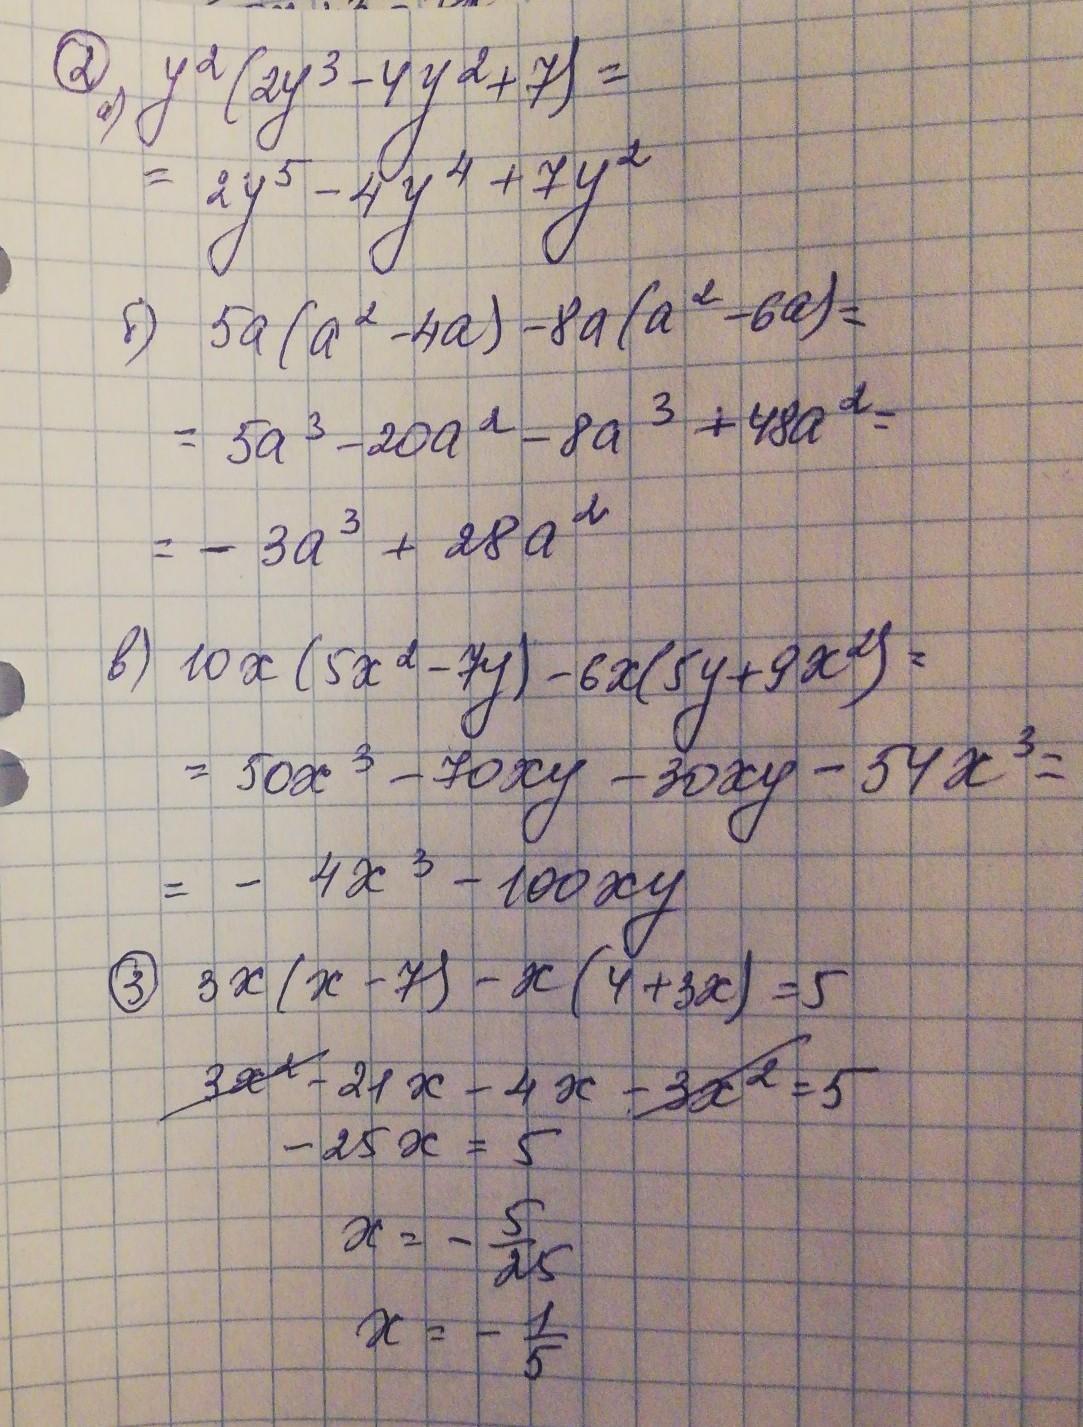 ② а) y²(2y³-4y²+7)=
= 2y⁵-4y⁴+7y²
б) 5a(a²-4a)-8a(a²-6a)=
= 5a³-20a²-8a³+48a²=
= -3a³+28a²
в) 10x(5x²-7y)-6x(5y+9x²)=
= 50x³-70xy-30xy-54x³=
= -4x³-100xy
③ 3x(x-7)-x(4+3x)=5
3x²-21x-4x-3x²=5
-25x=5
x=-5/25
x=-1/5